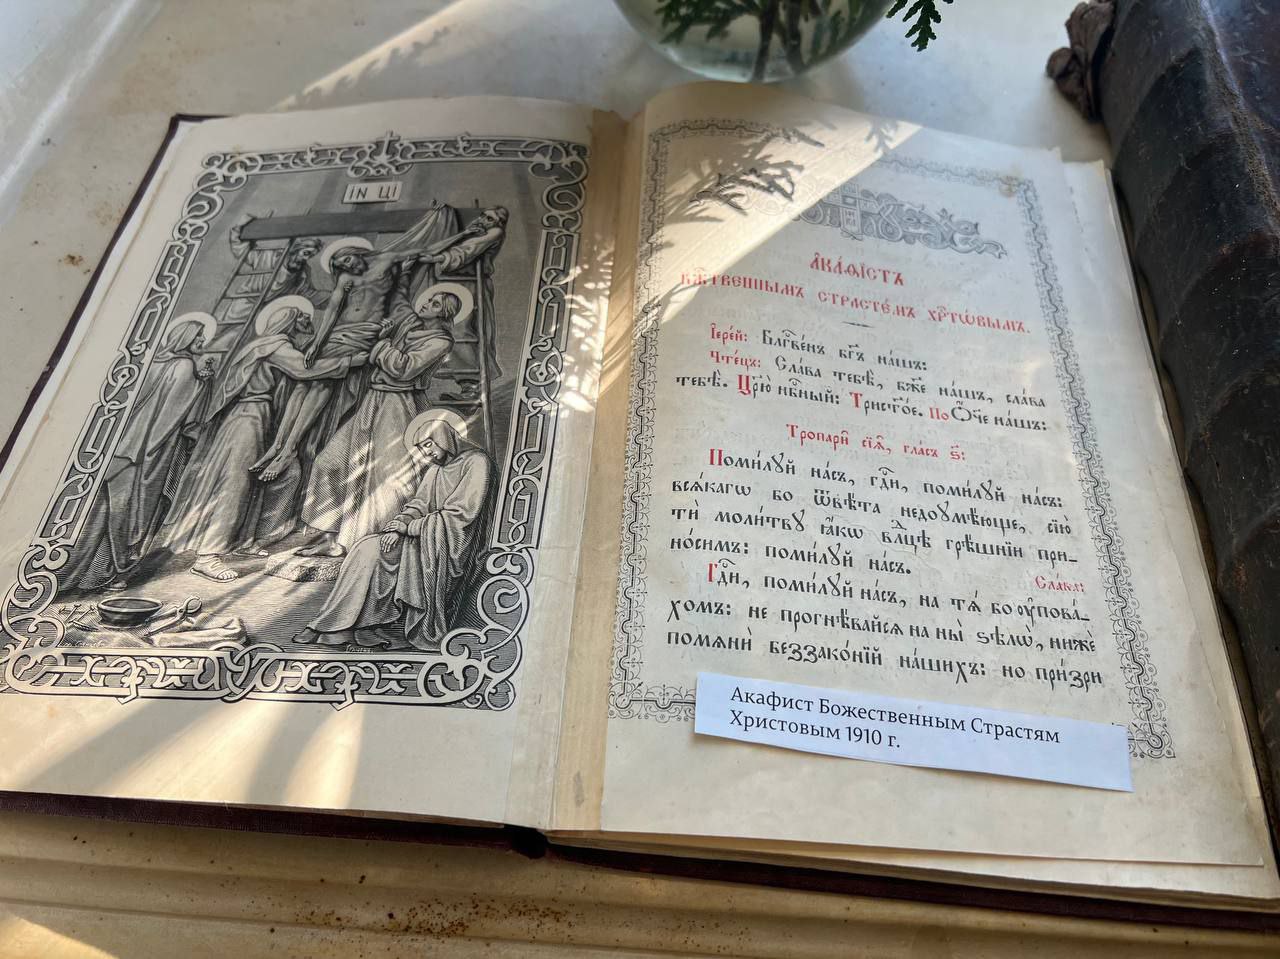 ІН ЦІ
А҆ка́ѳїстъ
бж҃твєннымъ страстє́мъ хрⷭ҇тѡвымъ.
І҆ерєй: Блгⷭ҇вє́нъ бг҃ъ на́шъ:
Чте́цъ: Сла́ва тебѣ̀, бж҃е на́шъ, сла́ва
тебѣ̀. Цр҃ю̀ нбⷭ҇ный: Трист҃о́е. По Ѻ҆́че на́шъ:
Тропари̑ сїѧ̑, гла́съ ѕ҃:
Поми́лꙋй на́съ, гдⷭ҇и, поми́лꙋй на́съ:
всѧ́кагѡ бо ѿвѣ́та недоꙋмѣ́юще, сїю̀
ти̑ моли́твꙋ ꙗ҆́кѡ влⷣцѣ грѣ́шнїи при-
но́симъ: поми́лꙋй на́съ.
Сла́ва:
Гдⷭ҇и, поми́лꙋй на́съ, на тѧ̀ бо ᲂу҆пова́-
хомъ: не прогнѣ́вайсѧ на ны̀ ѕѣлѡ̀, нижѐ
помѧнѝ беззако́нїй на́шихъ: но при́зри
Акафист Божественным Страстям
Христовым 1910 г.